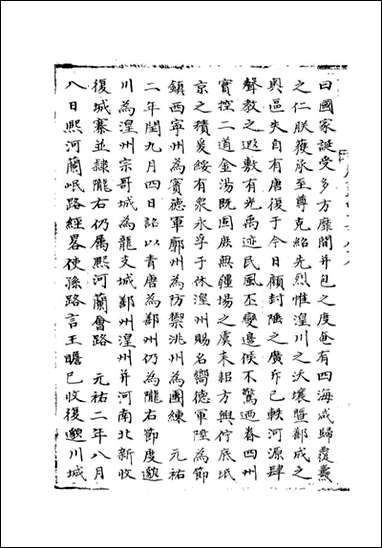 曰國家誕受多方靡間并包之度奄有四海咸歸覆燾
之仁朕獲承至尊克紹先烈惟湟川之沃壤暨鄯成之
奥區失自有唐復于今日顧封陲之廣斥已軼河源肆
聲教之遐敷有光禹迹民風丕變邉候不驚逈眷四州
實控二道金湯既固庶無疆塲之虞耒耜方興佇底坻
京之積爰綏有衆永孚于休湟州賜名嚮德軍陞為節
鎮西寧州為賓德軍廓州為防禦洮州為團練　元祐
二年閏九月四日詔以青唐為鄯州仍為隴右節度邈
川為湟州宗哥城為龍支城鄯州湟州并河南北新收
復城寨並隷隴右仍属熙河蘭會路　元祐二年八月
八日熙河蘭岷路經畧使孫路言王瞻已收復邈川城